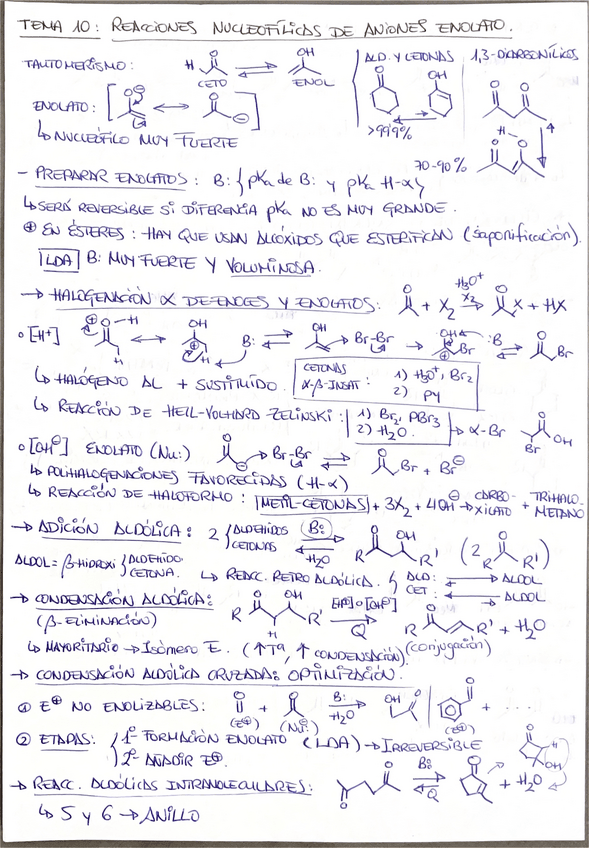 TEMA 10: REACCIONES NUCLEOFÍLICAS DE ANIONES ENOLATO.
TAUTOMERISMO: H O ⇌ OH
CETO ENOL
ALD. Y CETONAS
O OH
>99,9%
1,3-DICARBONÍLICOS
O O
H O O
70-90%
ENOLATO: [O⊖ ↔ O ⊖]
↳ NUCLEÓFILO MUY FUERTE
- PREPARAR ENOLATOS: B: { pKa de B: y pKa H-α }
↳ SERÁ REVERSIBLE SI DIFERENCIA pKa NO ES MUY GRANDE.
⊕ EN ÉSTERES: HAY QUE USAR ALCÓXIDOS QUE ESTERIFICAN (saponificación).
LDA B: MUY FUERTE Y VOLUMINOSA.
→ HALOGENACIÓN α DE ENOLES Y ENOLATOS: O + X₂ H₃O⁺ X₂ → O X + HX
o [H⁺] ⊕O-H H ↔ OH ⊕ H B: ⇌ OH → Br-Br → OH ⊕ Br :B ⇌ O Br
↳ HALÓGENO AL + SUSTITUIDO.
CETONAS α-β-INSAT: 1) H₃O⁺, Br₂
2) PY
↳ REACCIÓN DE HELL-VOLHARD-ZELINSKI: 1) Br₂, PBr₃
2) H₂O. → α-Br O OH Br
o [OH⊖] ENOLATO (Nu:) O ⊖ → Br-Br ⇌ O Br + Br⊖
↳ POLIHALOGENACIONES FAVORECIDAS (H-α)
↳ REACCIÓN DE HALOFORMO: METIL-CETONAS + 3X₂ + 4OH⊖ → CARBO-XILATO + TRIHALO-METANO
→ ADICIÓN ALDÓLICA: 2 { ALDEHIDOS CETONAS B: ⇌ H₂O O OH R R' (2 O R R')
ALDOL = β-HIDROXI { ALDEHIDO. CETONA.
↳ REACC. RETROALDÓLICA. { ALD: ⇌ ALDOL
CET: ⇌ ALDOL
→ CONDENSACIÓN ALDÓLICA: O OH R R' H [H⊕] o [OH⊖] → Q O R R' + H₂O
(β-ELIMINACIÓN) (conjugación)
↳ MAYORITARIO → Isómero E. (↑Tª, ↑ CONDENSACIÓN).
→ CONDENSACIÓN ALDÓLICA CRUZADA: OPTIMIZACIÓN.
① E⊕ NO ENOLIZABLES: O (E⊕) + O (Nu:) B: → H₂O OH O | O (E⊕) + ...
② ETAPAS: { 1º FORMACIÓN ENOLATO (LDA) → IRREVERSIBLE
2º AÑADIR E⊕.
→ REACC. ALDÓLICAS INTRAMOLECULARES: O O B: ⇌ Q O + H₂O O OH
↳ 5 y 6 → ANILLO